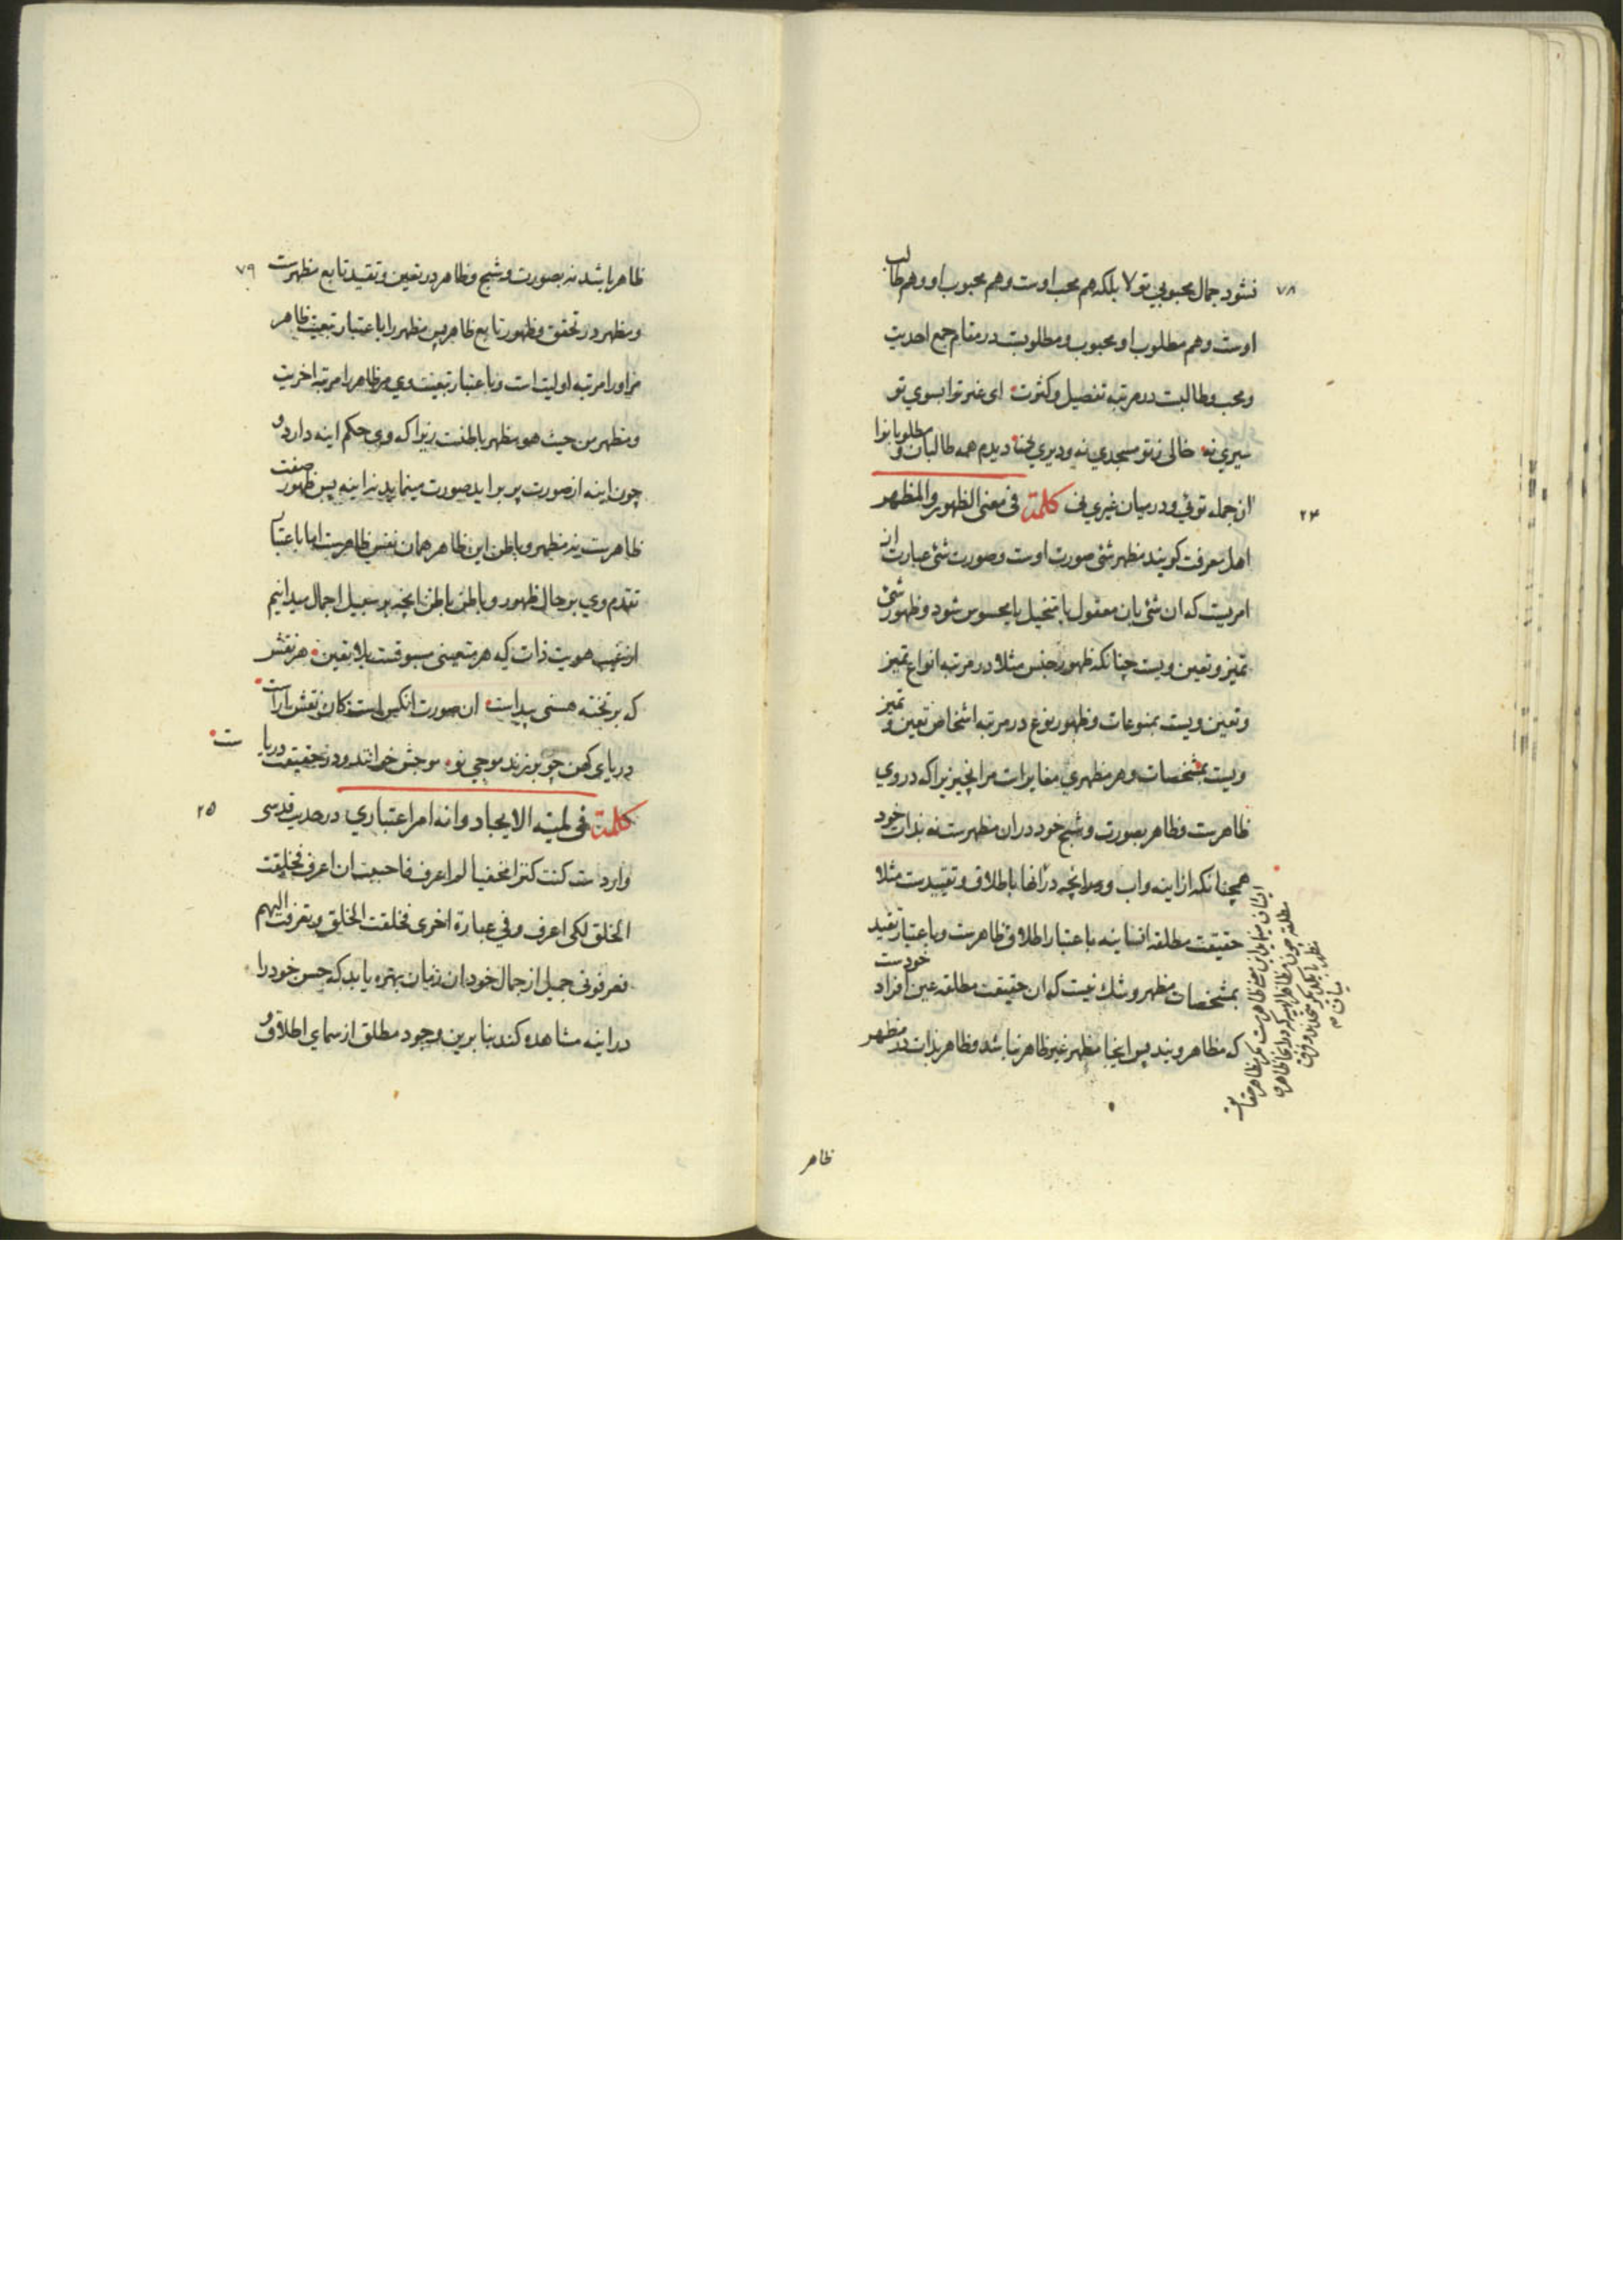 ٧٨
نشود جمال محبوبی تو لا بلکه هم محب اوست وهم محبوب او وهم طالب
اوست وهم مطلوب او ومحبوب ومطلوبیت در مقام جمع احدیت
ومحب وطالبت در مرتبه تفصیل وکثرت ای غیر ترا بسوی تو
سیری نه خالی ز تو مسجدی نه ودیری نه دیدم همه طالبان و مطلوبانرا
٢٤
ان جمله توئی ودر میان غیری نی کلمة فی معنی الظهور والمظهر
اهل معرفت کویند مظهر شئ صورت اوست وصورت شئ عبارت از
امریست که ان شئ بان معقول یا متخیل یا محسوس شود وظهور شئ
تمیز وتعین ویست چنانکه ظهور جنس مثلا در مرتبه انواع تمیز
وتعین ویست بمنوعات وظهور نوع در مرتبه اشخاص تعین و تمیز
ویست بمشخصات وهر مظهری مغایرات مر انچیز زیرا که در وی
ظاهرست وظاهر بصورت وشبح خود دران مظهرست نه بذات خود
همچنانکه از اینه واب وانچه در انها باطلاق وتقییدست مثلا
حقیقت مطلقه انسانیه باعتبار اطلاق ظاهرست وباعتبار تقید
بمشخصات مظهر وشك نیست که ان حقیقت مطلقه عین افراد خودست
که مظاهر ویند پس اینجا مظهر غیر ظاهر نباشد وظاهر بذات در مظهر
ظاهر
٧٩
ظاهر باشد نه بصورت وشبح وظاهر در تعین وتقید تابع مظهرست
ومظهر در تحقق وظهور تابع ظاهر پس مظهر را باعتبار تبعیت ظاهر
مر اورا مرتبه اولیت است وباعتبار تبعیت وی مر ظاهر را مرتبه اخریت
ومظهر من حیث هو مظهر باطنست زیرا که وی حکم اینه دارد و
چون اینه از صورت پر براید صورت مینماید نه اینه پس ظهور صفت
ظاهرست نه مظهر وباطن این ظاهر همان نفس ظاهرست اما باعتبار
تقدم وی بر حال ظهور وباطن باطن انچه بر سبیل اجمال میدانیم
از غیب هویت ذات که هر متعینی مسبوقست بلا تعین هر نقش
که بر تخته هستی پیداست ان صورت انکس است کان نقش اراست
دریای کهن چو برزند موجی نو موجش خوانند ودر حقیقت دریاست
٢٥
کلمة فی لمیّة الایجاد وانه امر اعتباری در حدیث قدسی
واردست کنت کنزا مخفیا لم اعرف فاحببت ان اعرف فخلقت
الخلق لکی اعرف وفی عبارة اخری فخلقت الخلق وتعرفت الیهم
فعرفونی جمیل از جمال خود ان زمان بهره یابد که حسن خود را
در اینه مشاهده کند بنا برین وجود مطلق از سمای اطلاق و